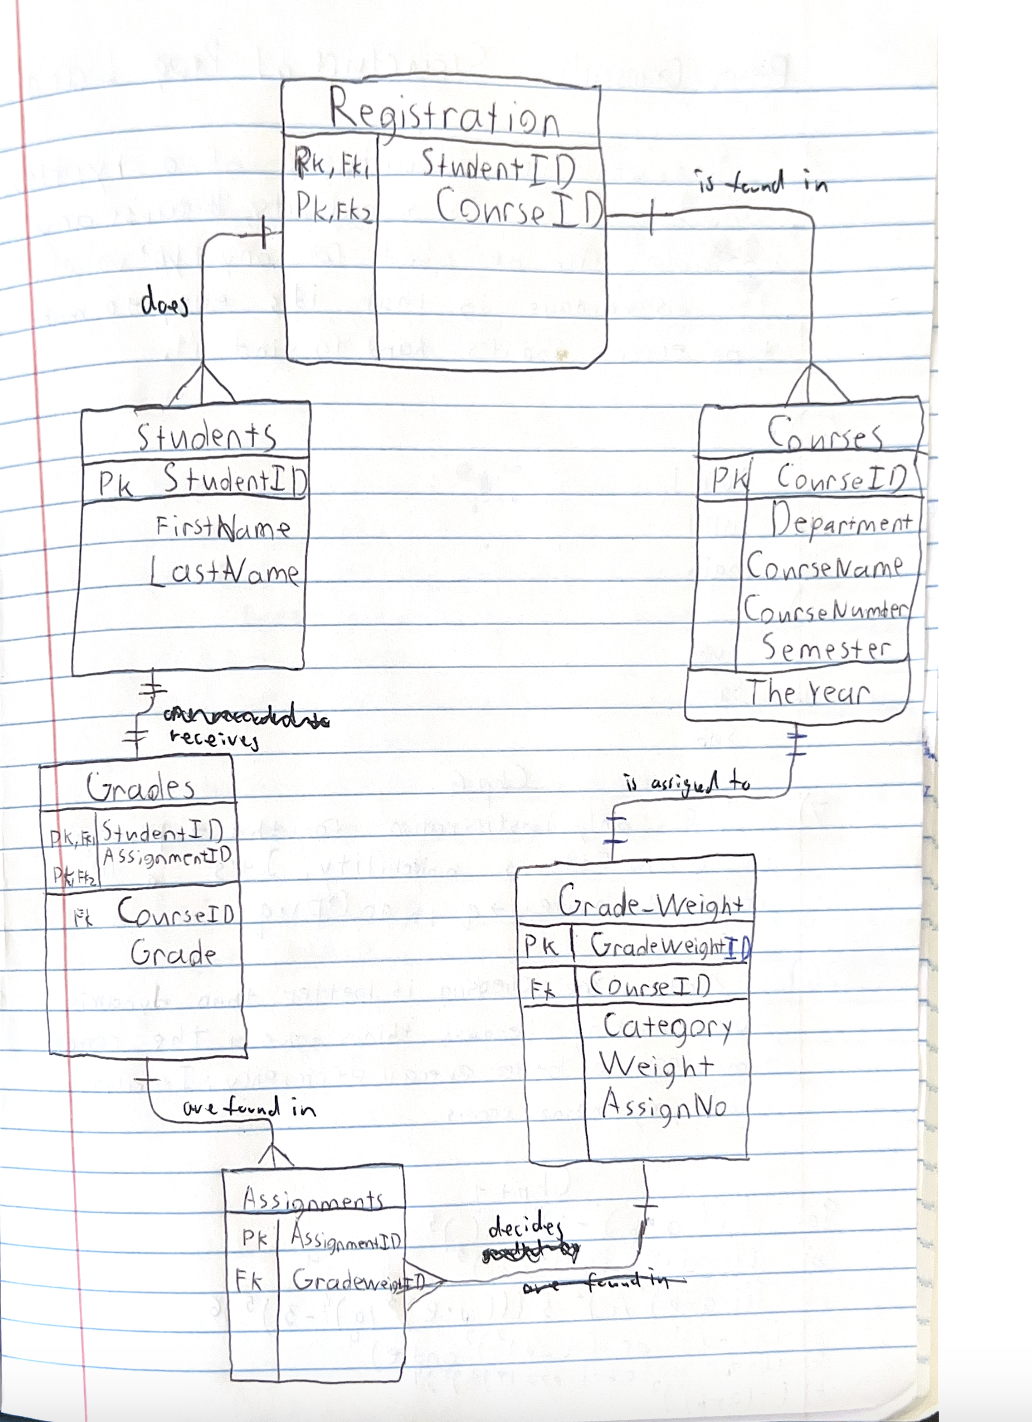 Registration
PK, FK1 StudentID
PK, FK2 CourseID
is found in
does
Students
PK StudentID
FirstName
LastName
Courses
PK CourseID
Department
CourseName
CourseNumber
Semester
The Year
receives
is assigned to
Grades
PK, FK1 StudentID
AssignmentID
PK, FK2
FK CourseID
Grade
Grade_Weight
PK GradeweightID
FK CourseID
Category
Weight
AssignNo
are found in
Assignments
PK AssignmentID
FK GradeweightID
decides
are found in